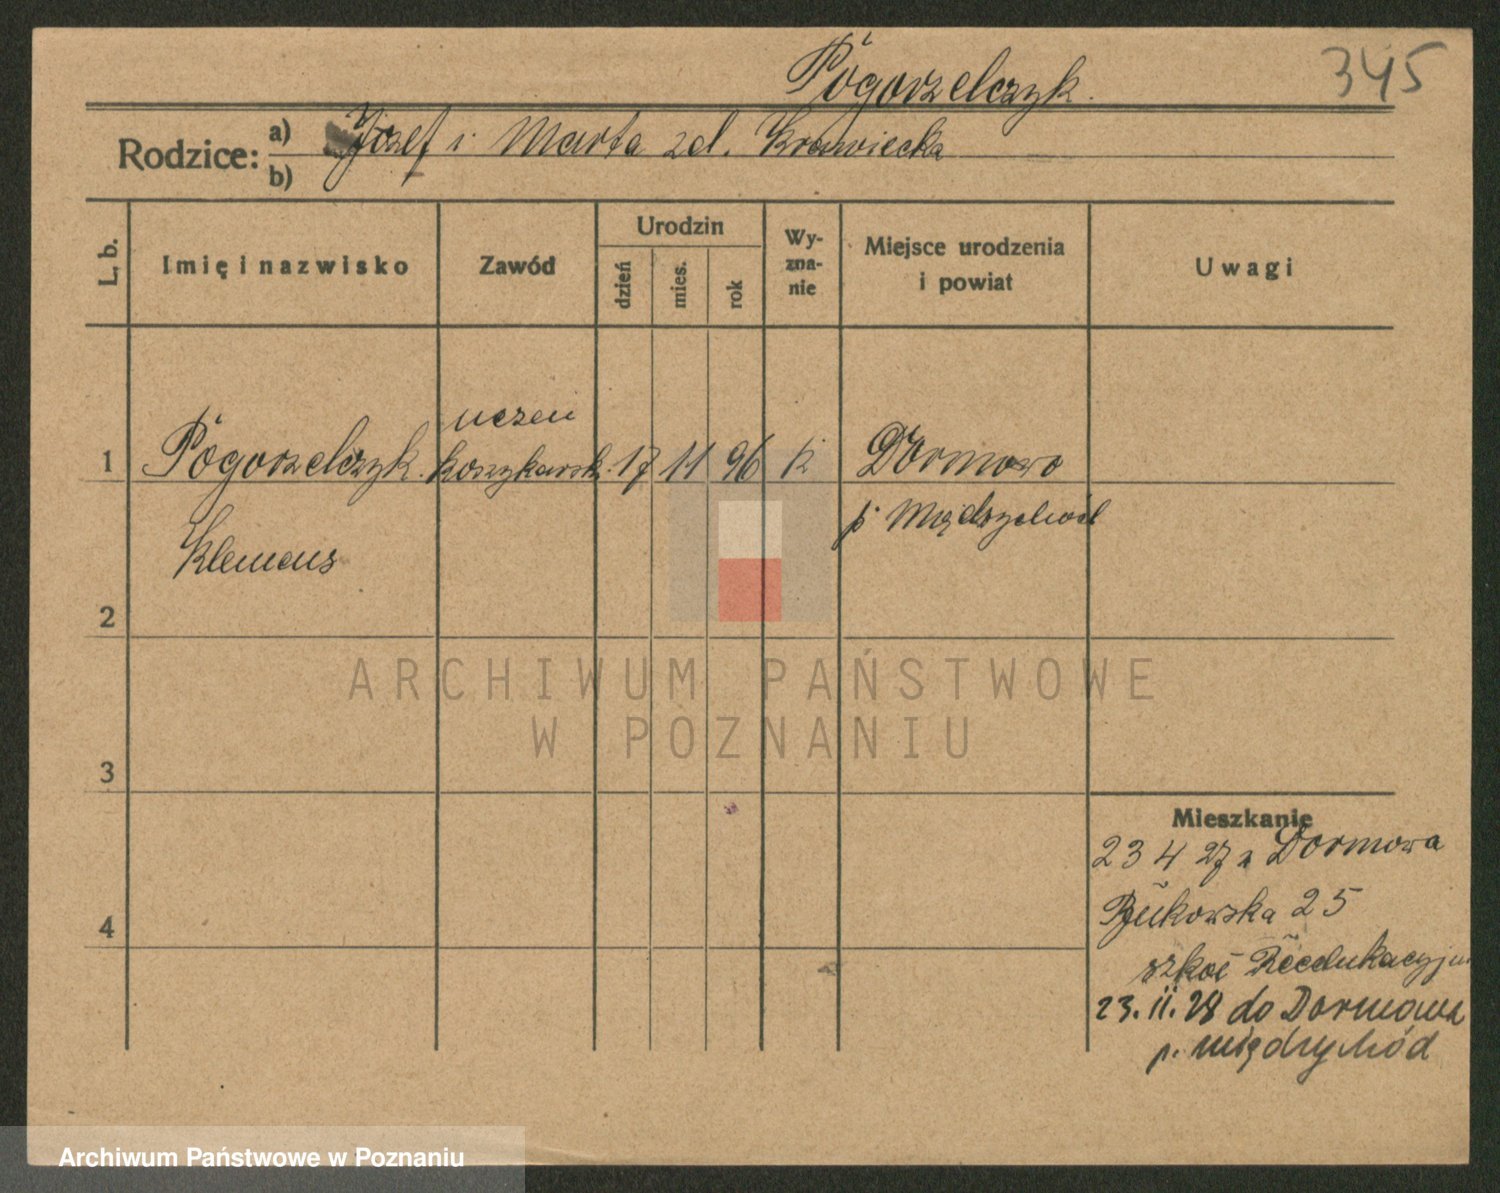 Pogorzelczyk.
345
Rodzice: a) Józef i Marta zd. Krawiecka
b)
L. b.
Imię i nazwisko
Zawód
Urodzin
dzień
mies.
rok
Wy-
zna-
nie
Miejsce urodzenia
i powiat
Uwagi
uczeń
1 Pogorzelczyk. koszykarsk. 17 11 96 k Dormowo
p. Międzychód
Klemens
2
3
4
Mieszkanie
23 4 27 z Dormowa
Bukowska 25
szkoł Reedukacyjn.
23. 11. 28 do Dormowa
p. Międzychód
ARCHIWUM PAŃSTWOWE
W POZNANIU
Archiwum Państwowe w Poznaniu